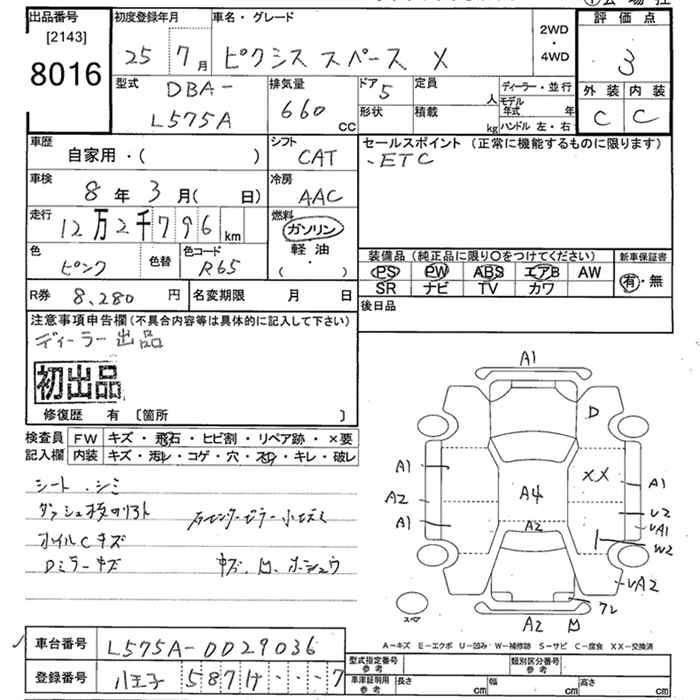 出品番号 [2143] 8016
初度登録年月 25 7月
車名・グレード ピクシス スペース X
2WD・4WD
評価点 3
外装 C 内装 C
型式 DBA-L575A
排気量 660 CC
ドア 5
形状
定員 人
積載 kg
ディーラー・並行
モデル年式 年
ハンドル 左・右
車歴 自家用・( )
シフト CAT
セールスポイント (正常に機能するものに限ります)
・ETC
車検 8年 3月( 日)
冷房 AAC
走行 12万2千796km
燃料 ガソリン・軽油・
色 ピンク 色替
色コード R65
装備品 (純正品に限り○をつけてください)
PS PW ABS エアB AW
SR ナビ TV カワ
新車保証書 有・無
R券 8,280円
名変期限 月 日
後日品
注意事項申告欄 (不具合内容等は具体的に記入して下さい)
ディーラー出品
初出品
修復歴 有 〔箇所 〕
検査員記入欄
FW キズ・飛石・ヒビ割・リペア跡・×要
内装 キズ・汚レ・コゲ・穴・スレ・キレ・破レ
シート、シミ
オイルCキズ
Dミラーキズ
A1
D
A1
XX
A1
A2
A4
U2
A1
A2
UA1
W2
UA2
A2
スペア
A-キズ E-エクボ U-凹み W-補修跡 S-サビ C-腐食 XX-交換済
車台番号 L575A-0029036
登録番号 八王子 587 け ・・・7
型式指定番号 参考
類別区分番号 参考
車庫証明用 参考
長さ cm 幅 cm 高さ cm